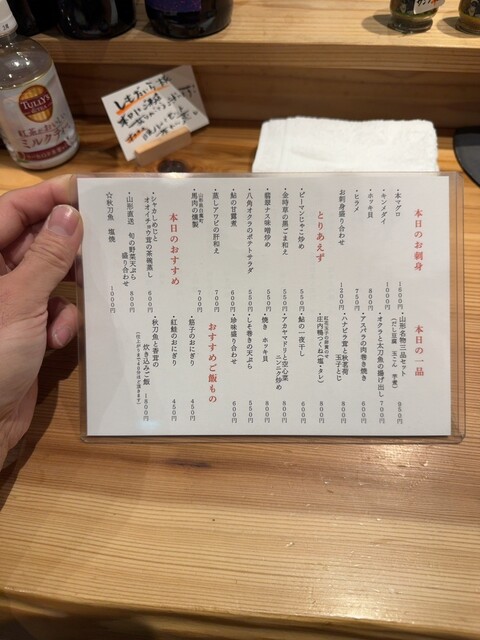 本日のお刺身
・本マグロ 1600円
・キンメダイ 1000円
・ホッキ貝 800円
・ヒラメ 750円
お刺身盛り合わせ 1200円
とりあえず
・ピーマンじゃこ炒め 550円
・金時草の黒ごま和え 550円
・翡翠ナス味噌炒め 550円
・八角オクラのポテトサラダ 550円
・鮎の甘露煮 600円
・蒸しアワビの肝和え 700円
山形県白鷹町
・馬肉の燻製 700円
本日のおすすめ
・シャカしめじと
オオイチョウ茸の茶碗蒸し 600円
・山形直送 旬の野菜天ぷら
盛り合わせ 800円
☆秋刀魚 塩焼 1000円
本日の一品
・山形名物三品セット 950円
（だし豆腐 玉こん 芋煮）
・オクラと太刀魚の揚げ出し 700円
・アスパラの肉巻き焼き 800円
・ハナビラ茸と秋茗荷
玉子とじ 800円
・庄内鴨つくね（塩・タレ） 800円
・鮎の一夜干し 600円
・アカヤマドリと空心菜
ニンニク炒め 800円
・焼き ホッキ貝 800円
・しそ巻きの天ぷら 550円
・珍味盛り合わせ 600円
おすすめご飯もの
・筋子のおにぎり 450円
・紅鮭のおにぎり 450円
・秋刀魚と香茸の
炊き込みご飯 1800円
TULLY'S
紅茶がおいしい
ミルクティー